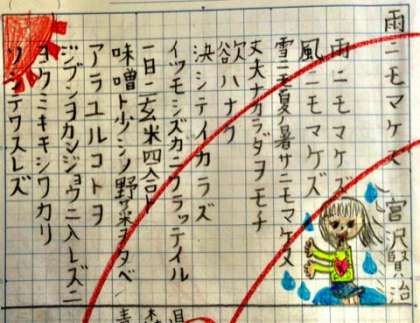 雨ニモマケズ
宮沢賢治
雨ニモマケズ
風ニモマケズ
雪ニモ夏ノ暑サニモマケヌ
丈夫ナカラダヲモチ
欲ハナク
決シテイカラズ
イツモシズカニワラッテイル
一日ニ玄米四合ト
味噌ト少シノ野菜ヲタベ
アラユルコトヲ
ジブンヲカンジョウニ入レズニ
ヨクミキキシワカリ
ソシテワスレズ